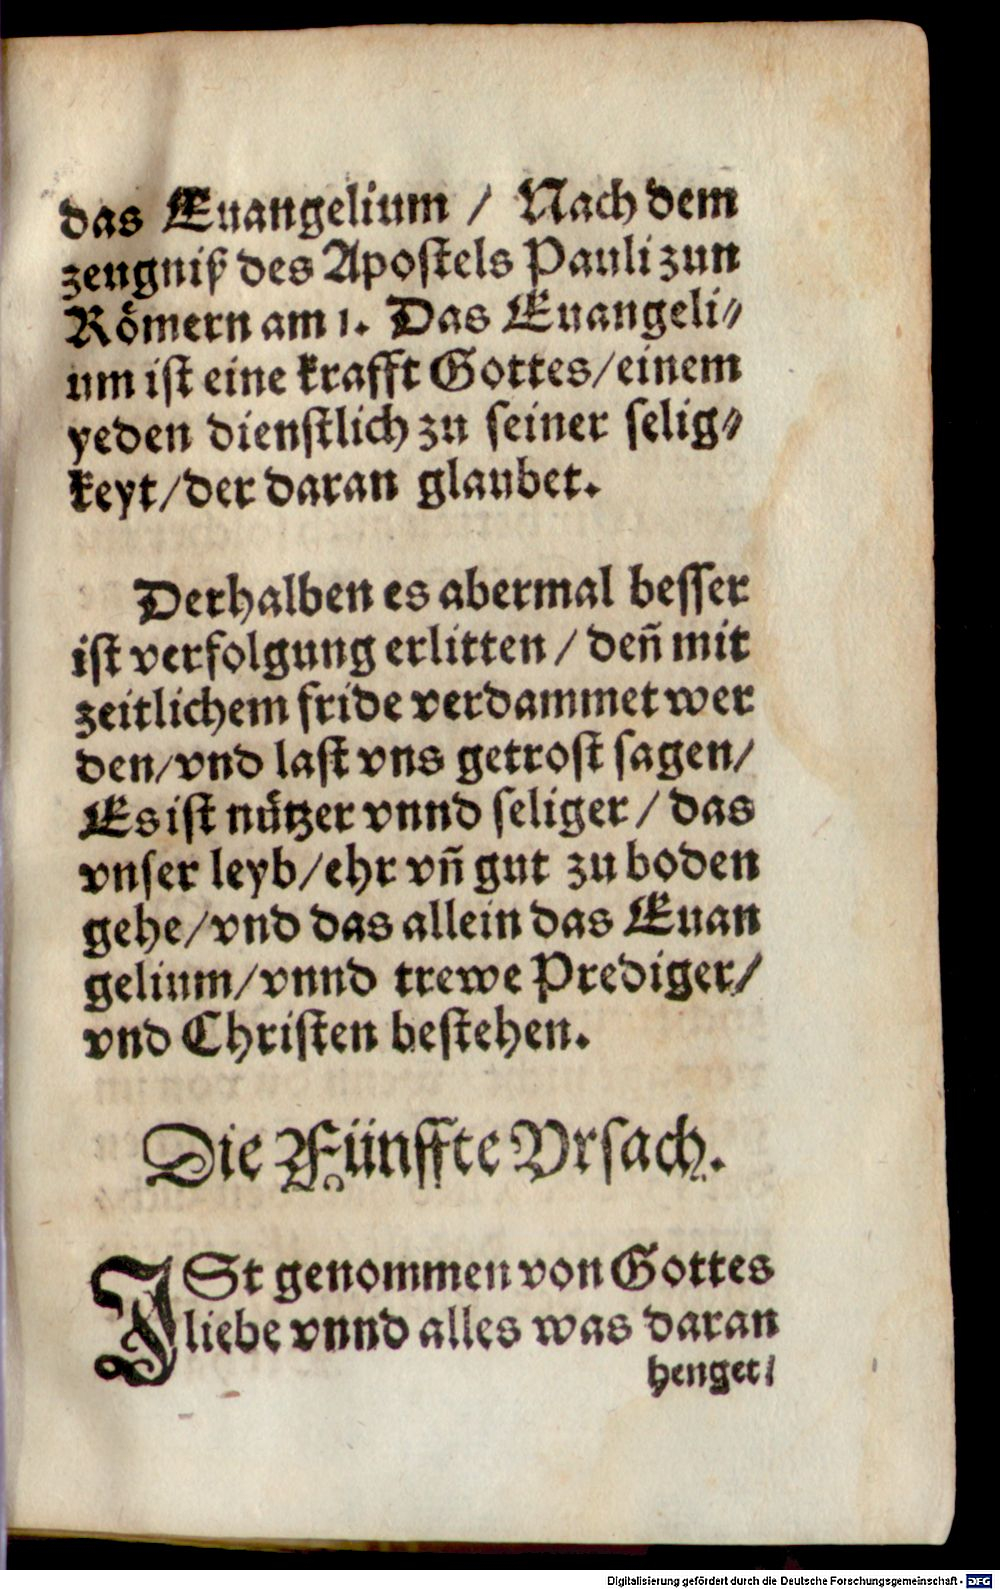 das Euangelium / Nach dem
zeugniß des Apostels Pauli zun
Römern am 1. Das Euangeli⸗
um ist eine krafft Gottes/einem
yeden dienstlich zu seiner selig⸗
keyt/der daran glaubet.
Derhalben es abermal besser
ist verfolgung erlitten / deñ mit
zeitlichem fride verdammet wer
den/vnd last vns getrost sagen/
Es ist nützer vnnd seliger / das
vnser leyb/ehr vñ gut zu boden
gehe/vnd das allein das Euan
gelium/vnnd trewe Prediger/
vnd Christen bestehen.
Die Fünffte Vrsach.
ISt genommen von Gottes
liebe vnnd alles was daran
henget/
Digitalisierung gefördert durch die Deutsche Forschungsgemeinschaft - DFG